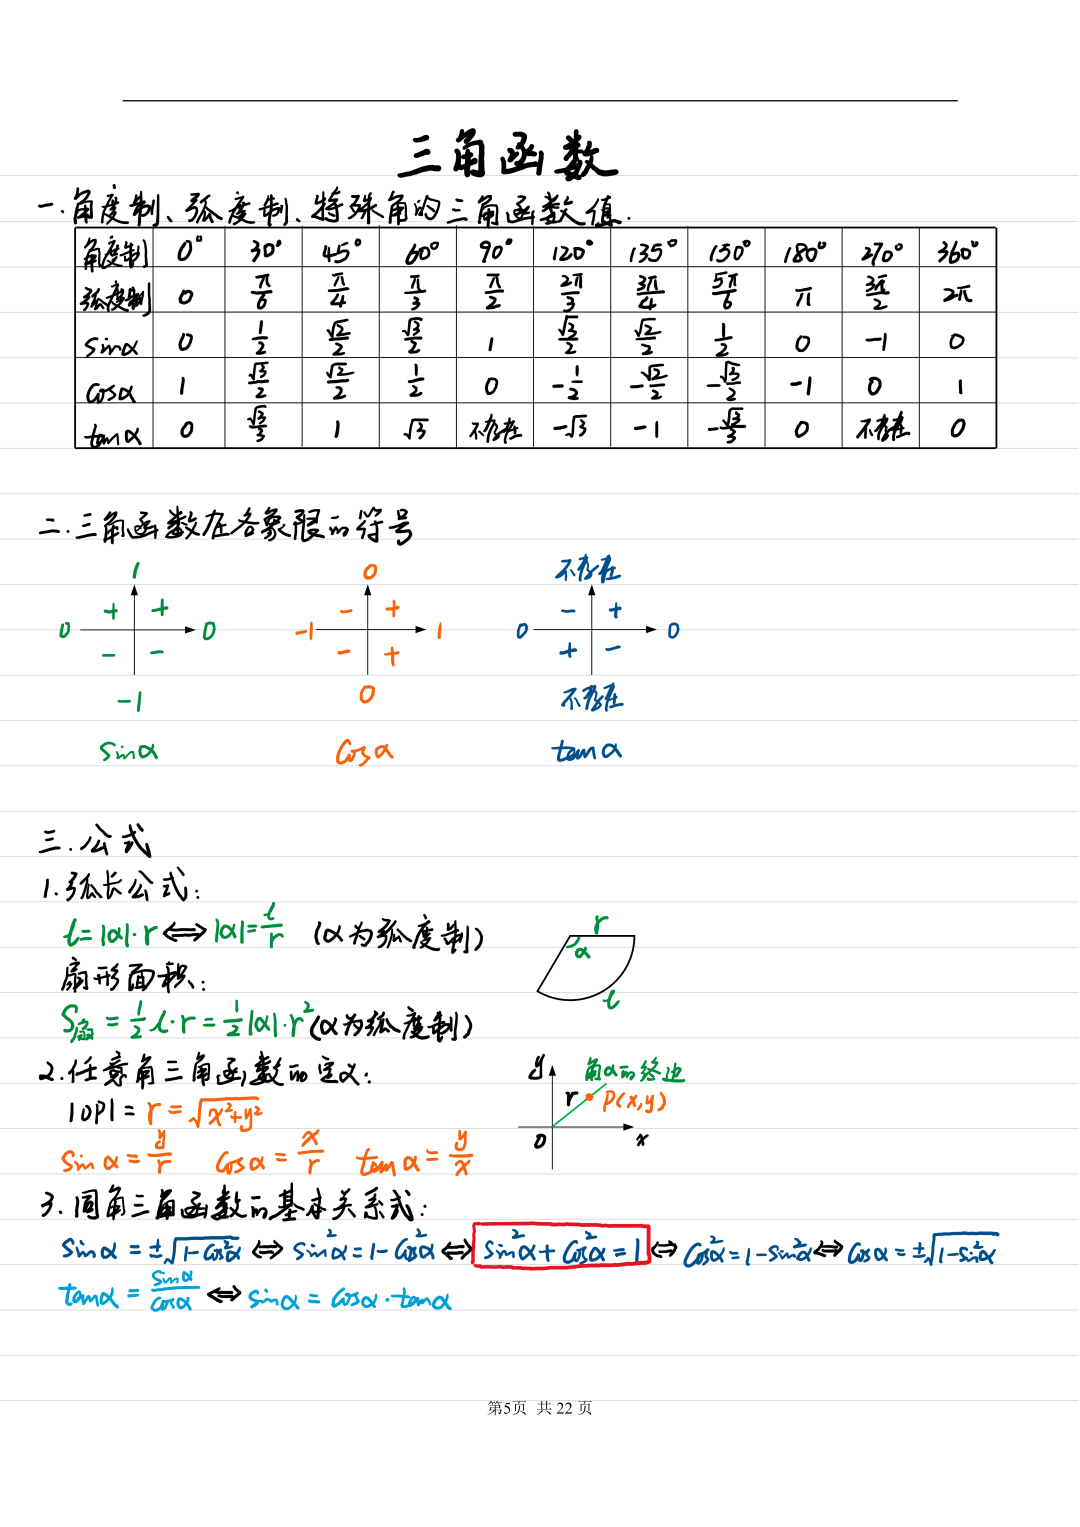 三角函数
一.角度制、弧度制、特殊角的三角函数值.
角度制 0° 30° 45° 60° 90° 120° 135° 150° 180° 270° 360°
弧度制 0 π/6 π/4 π/3 π/2 2π/3 3π/4 5π/6 π 3π/2 2π
sinα 0 1/2 √2/2 √3/2 1 √3/2 √2/2 1/2 0 -1 0
cosα 1 √3/2 √2/2 1/2 0 -1/2 -√2/2 -√3/2 -1 0 1
tanα 0 √3/3 1 √3 不存在 -√3 -1 -√3/3 0 不存在 0
二.三角函数在各象限的符号
1 0 不存在
+ + - + - +
0 0 -1 1 0 0
- - - + + -
-1 0 不存在
sinα cosα tanα
三.公式
1.弧长公式:
l=|α|·r⇔|α|=l/r (α为弧度制)
r
α
l
扇形面积:
S扇=1/2 l·r=1/2|α|·r²(α为弧度制)
2.任意角三角函数的定义:
y 角α的终边
r P(x,y)
0 x
|OP|=r=√(x²+y²)
sinα=y/r cosα=x/r tanα=y/x
3.同角三角函数的基本关系式:
sinα=±√(1-cos²α)⇔sin²α=1-cos²α⇔sin²α+cos²α=1⇔cos²α=1-sin²α⇔cosα=±√(1-sin²α)
tanα=sinα/cosα⇔sinα=cosα·tanα
第5页 共 22 页